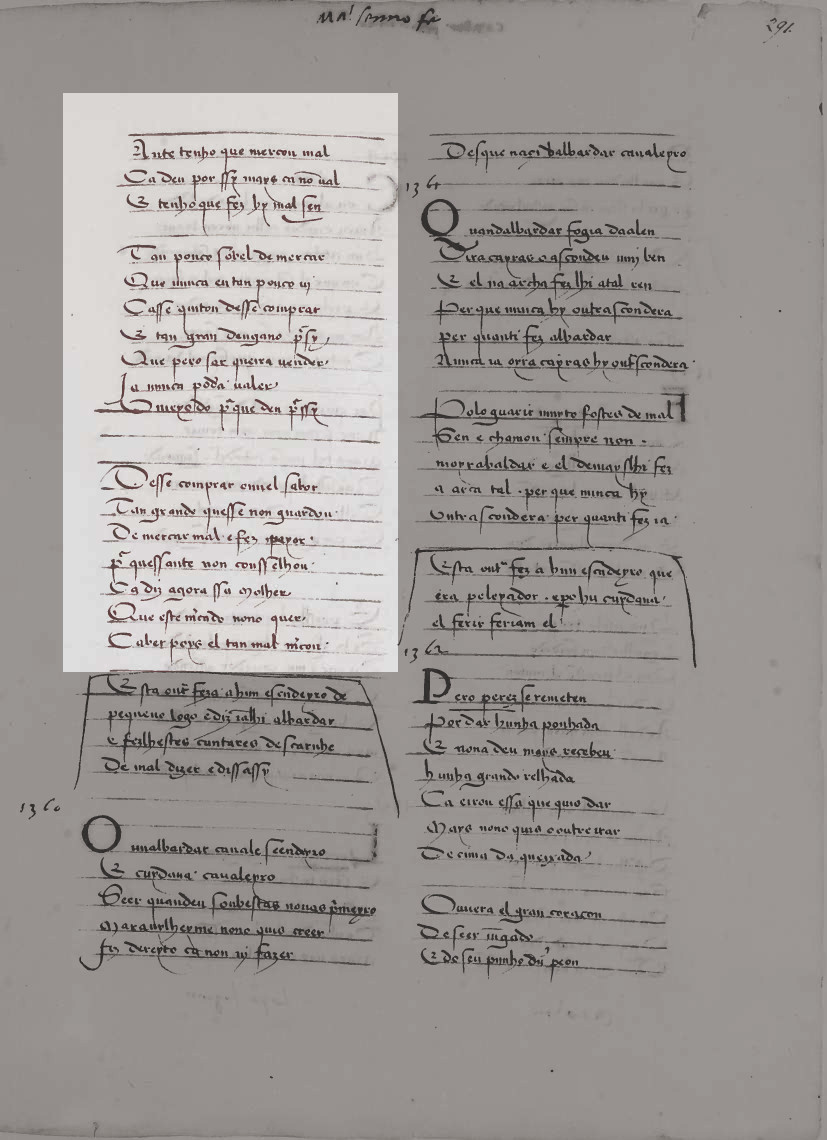 Mart senno fr
291.
Ante tenho que mercou mal
Ca deu por ssy mays ca nō ual
E tenho que fez hy mal sen
Tan pouco sobel de mercar
Que nunca en tan pouco ui
Casse quiton desse comprar
E tan gran dengano p̄ssy
Que pero sar queira uender
Ja nunca podā ualer
O meyo do p̄ que deu p̄ssy
Desse comprar ouuel sabor
Tan grande quesse non guardou
De mercar mal e fez peyor
p̄ quessante non consselhou
Ca diz agora ssa molher
Que este m̄cado nono quer
Caber poys el tan mal m̄cou
Esta out̄ feza a hun escudeyro de
pequeno logo e diziālhi albardar
e fezlhestes cantares descarnhe
De mal dizer e dissassy
1360
Ounalbardar caualo seendeyro
E cuydaua caualeyro
Seer quandeu soubestas nouas p̄meyro
Marauilheyme nono quis creer
fiz dereyto ca non ui fazer
Des que naçi albardar caualeyro
1361
Quandalbardar fogia daalen
Tira capras e ascondeu umi ben
E el na archa fez lhi atal ren
Per que nunca hy outra scondera
per quanti fez albardar
Nunca ia oyra capras hy out̄ scondera
Polo guarir muyto fostes de mal
Sen e chamou sempre non
moyrabaldar e el demays lhi fez
a arca tal . per que nunca hy
outra scondera per quanti fez ia
Esta out̄ fez a hun escudeyro que
era peleiador . e po hu cuydaua
el ferir feriam el
1362
Pero perez se remeteu
Por dar hunha punhada
E nona deu mays recebeu
hunha grande relhada
Ca errou essa que quis dar
Mays nono quis o outre errar
De cima da queyxada
Ouuera el gran coraçon
De seer uingado
E de seu punho dū peon